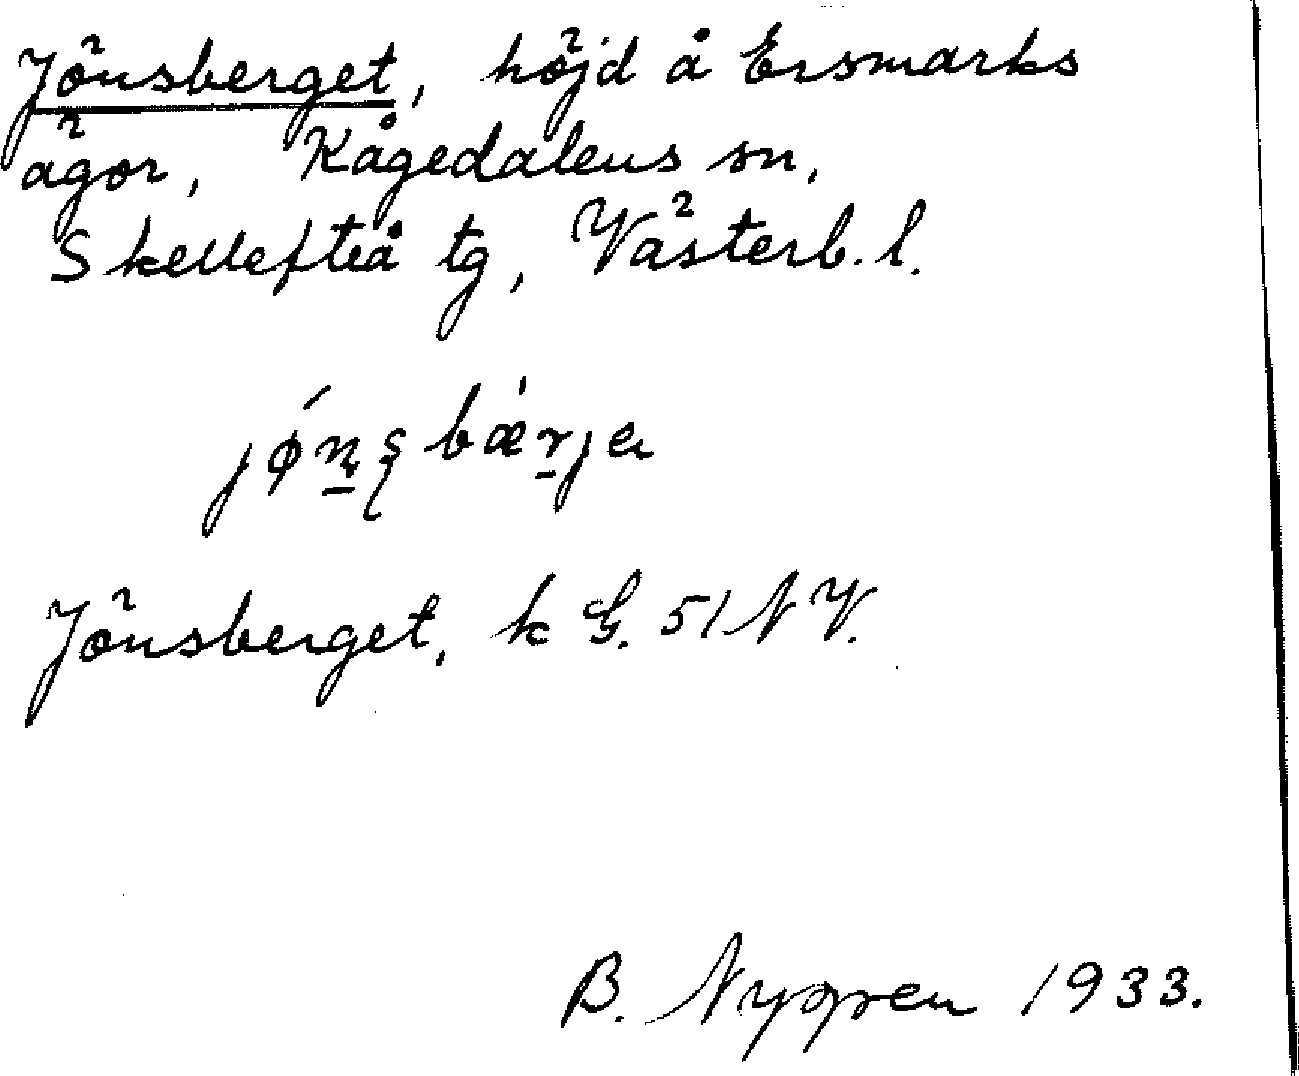 Jönsberget, höjd å Ersmarks
ägor, Kågedalens sn,
Skellefteå tg, Västerb. l.
jǿn̠ʂbæ̍r̠ja
Jönsberget, k G. 51 NV.
B. Nygren 1933.